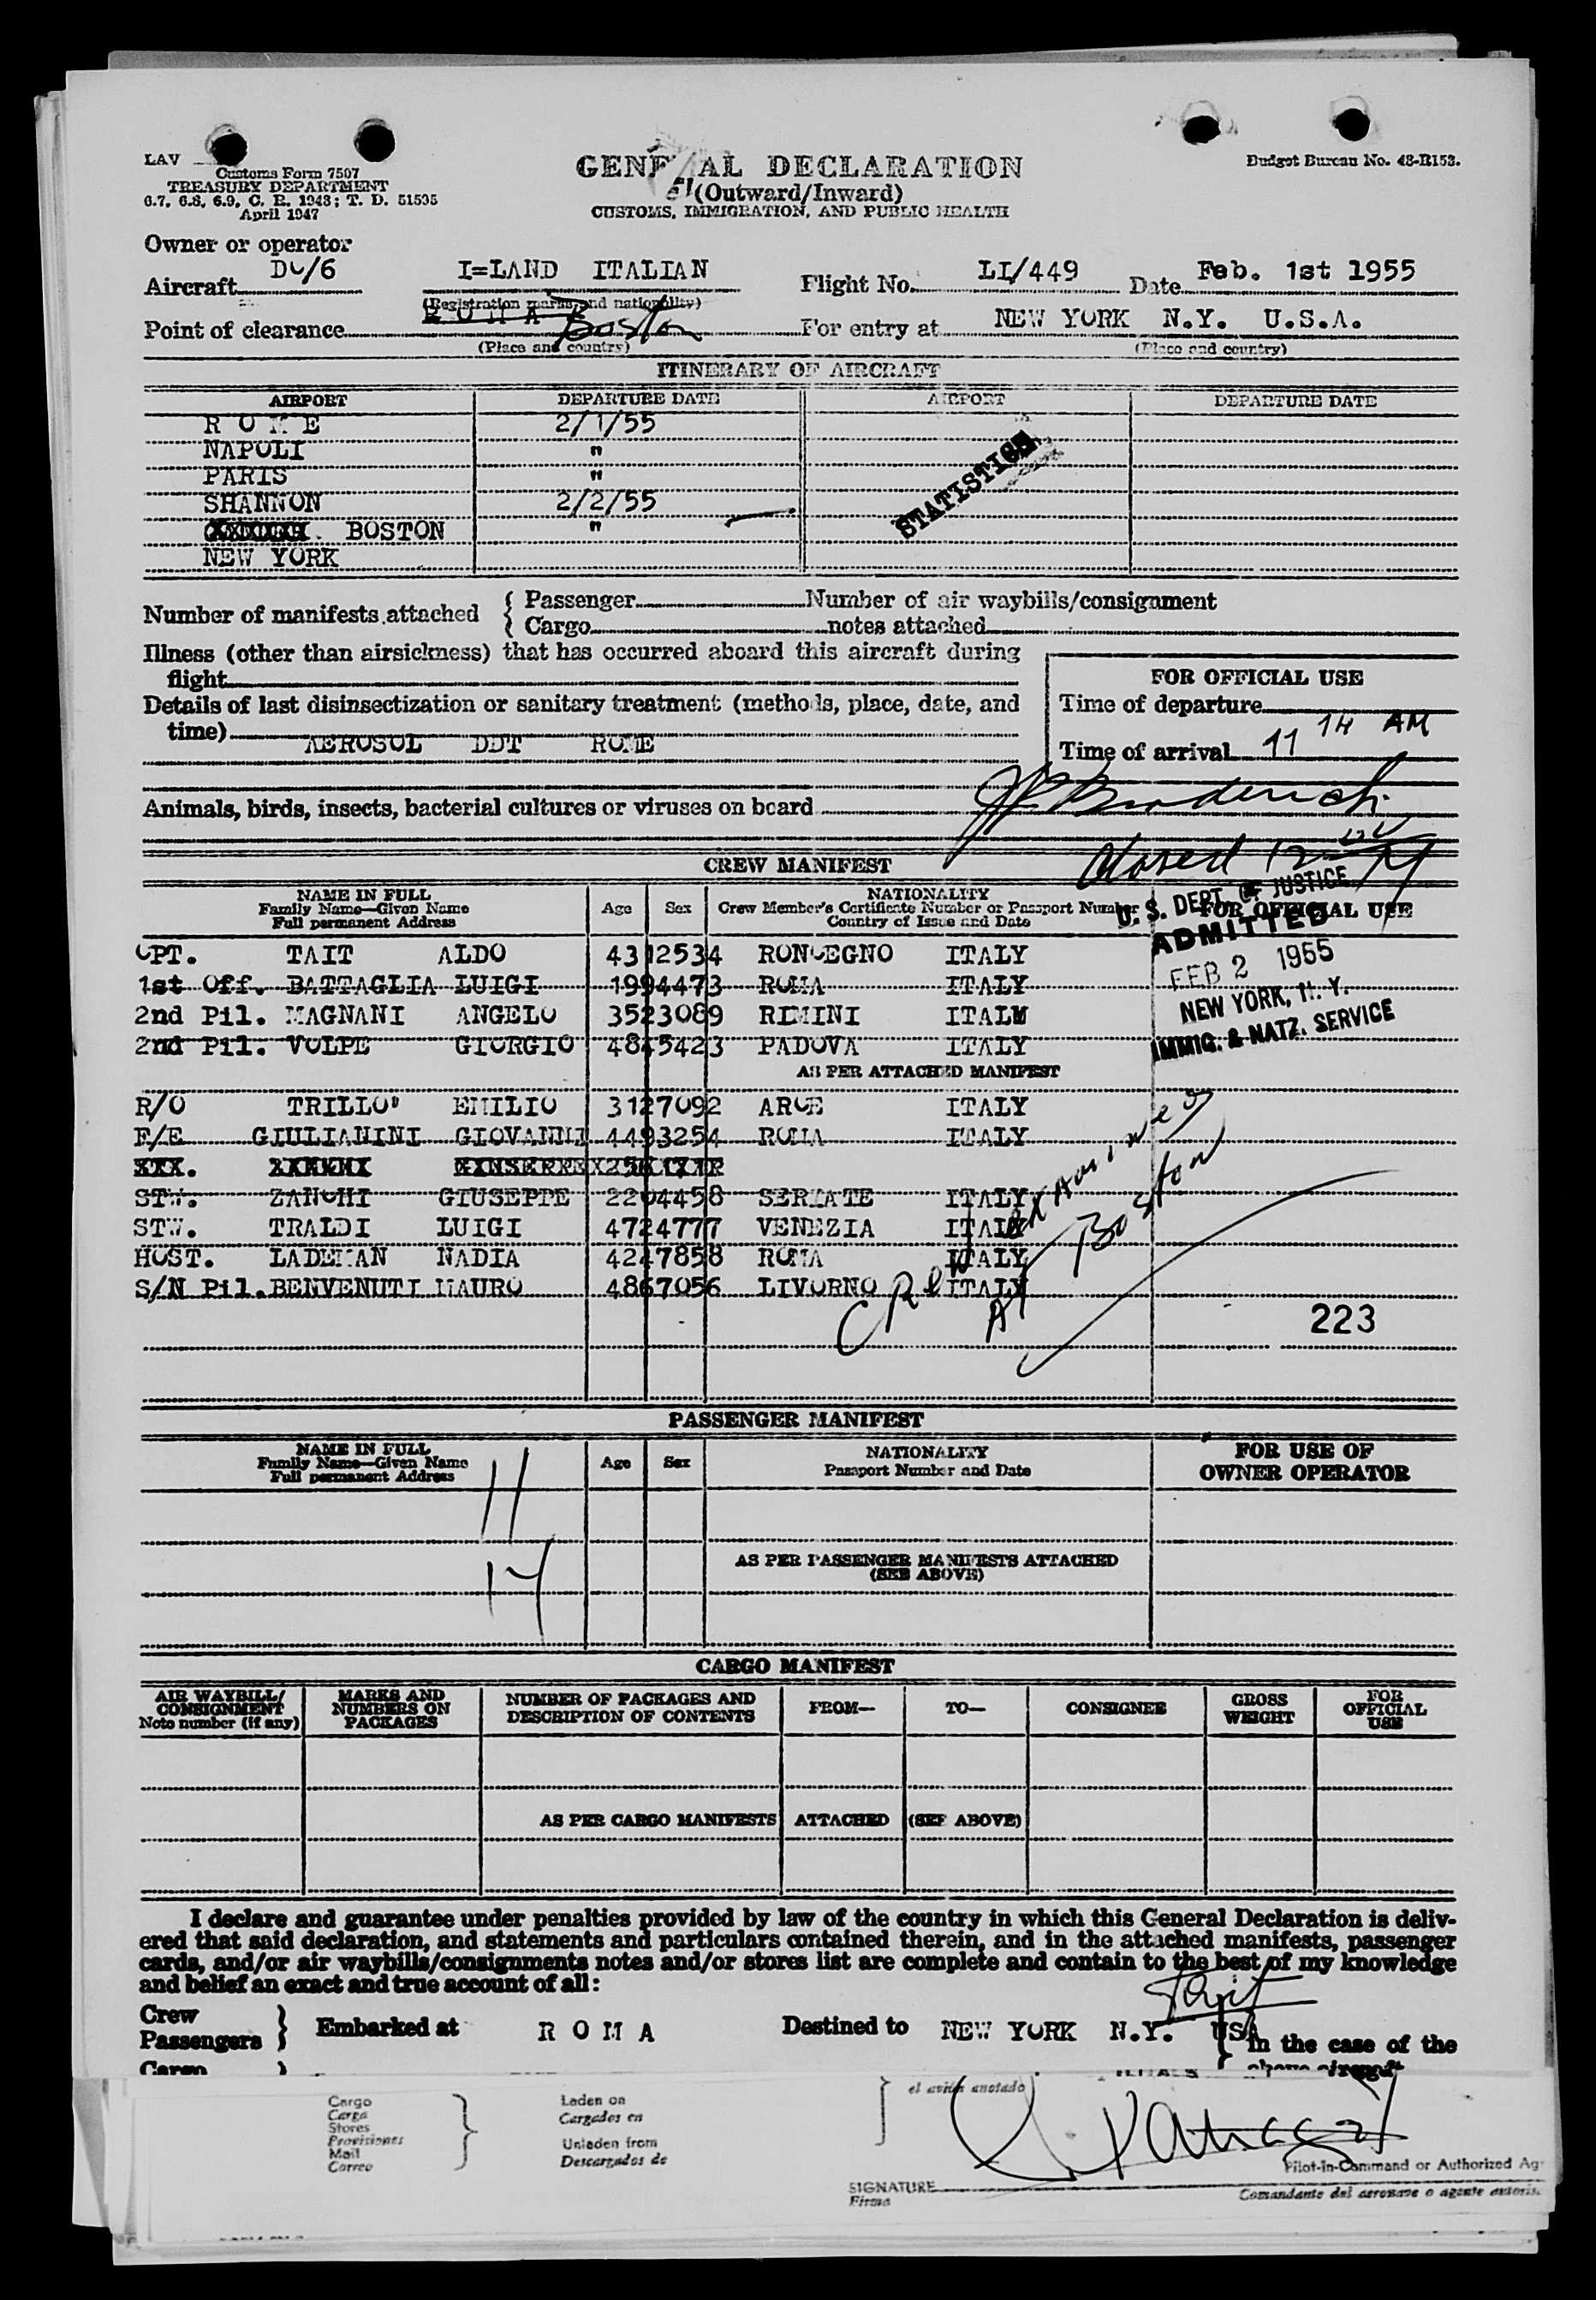 LAV
Customs Form 7507
TREASURY DEPARTMENT
6.7, 6.8, 6.9, C. R. 1943; T. D. 51535
April 1947
GENERAL DECLARATION
(Outward/Inward)
CUSTOMS, IMMIGRATION, AND PUBLIC HEALTH
Budget Bureau No. 48-R153.
Owner or operator
Aircraft DC/6 I=LAND ITALIAN Flight No. LI/449 Date Feb. 1st 1955
(Registration marks and nationality)
Point of clearance R O M A Boston For entry at NEW YORK N.Y. U.S.A.
(Place and country) (Place and country)
ITINERARY OF AIRCRAFT
AIRPORT DEPARTURE DATE AIRPORT DEPARTURE DATE
R O M E 2/1/55
NAPOLI "
PARIS "
SHANNON 2/2/55
BOSTON "
NEW YORK
STATISTICS
Number of manifests attached { Passenger Number of air waybills/consignment
{ Cargo notes attached
Illness (other than airsickness) that has occurred aboard this aircraft during
flight
Details of last disinsectization or sanitary treatment (methods, place, date, and
time) AEROSOL DDT ROME
FOR OFFICIAL USE
Time of departure
Time of arrival 11 14 AM
Animals, birds, insects, bacterial cultures or viruses on board
CREW MANIFEST
NAME IN FULL
Family Name—Given Name
Full permanent Address
Age Sex
NATIONALITY
Crew Member's Certificate Number or Passport Number
Country of Issue and Date
FOR OFFICIAL USE
U. S. DEPT. OF JUSTICE
ADMITTED
FEB 2 1955
NEW YORK, N. Y.
IMMIG. & NATZ. SERVICE
CPT. TAIT ALDO 4312534 RONCEGNO ITALY
1st Off. BATTAGLIA LUIGI 1994473 ROMA ITALY
2nd Pil. MAGNANI ANGELO 3523089 RIMINI ITALY
2nd Pil. VOLPE GIORGIO 4845423 PADOVA ITALY
AS PER ATTACHED MANIFEST
R/O TRILLO' EMILIO 3127092 ARCE ITALY
F/E GIULIANINI GIOVANNI 4493254 ROMA ITALY
STW. ZANCHI GIUSEPPE 2204458 SERIATE ITALY
STW. TRALDI LUIGI 4724777 VENEZIA ITALY
HOST. LADEMAN NADIA 4247858 ROMA ITALY
S/N Pil. BENVENUTI MAURO 4867056 LIVORNO ITALY
Crew examined
At Boston
223
PASSENGER MANIFEST
NAME IN FULL
Family Name—Given Name
Full permanent Address
Age Sex
NATIONALITY
Passport Number and Date
FOR USE OF
OWNER OPERATOR
11
14
AS PER PASSENGER MANIFESTS ATTACHED
(SEE ABOVE)
CARGO MANIFEST
AIR WAYBILL/
CONSIGNMENT
Note number (if any)
MARKS AND
NUMBERS ON
PACKAGES
NUMBER OF PACKAGES AND
DESCRIPTION OF CONTENTS
FROM—
TO—
CONSIGNEE
GROSS
WEIGHT
FOR
OFFICIAL
USE
AS PER CARGO MANIFESTS ATTACHED (SEE ABOVE)
I declare and guarantee under penalties provided by law of the country in which this General Declaration is deliv-
ered that said declaration, and statements and particulars contained therein, and in the attached manifests, passenger
cards, and/or air waybills/consignments notes and/or stores list are complete and contain to the best of my knowledge
and belief an exact and true account of all:
Crew
Passengers
Cargo
Embarked at R O M A Destined to NEW YORK N.Y. USA
In the case of the
above aircraft
Cargo
Carga
Stores
Provisiones
Mail
Correo
Laden on
Cargados en
Unladen from
Descargados de
el avión anotado
SIGNATURE
Firma
Pilot-in-Command or Authorized Ag
Comandante del aeronave o agente autoris